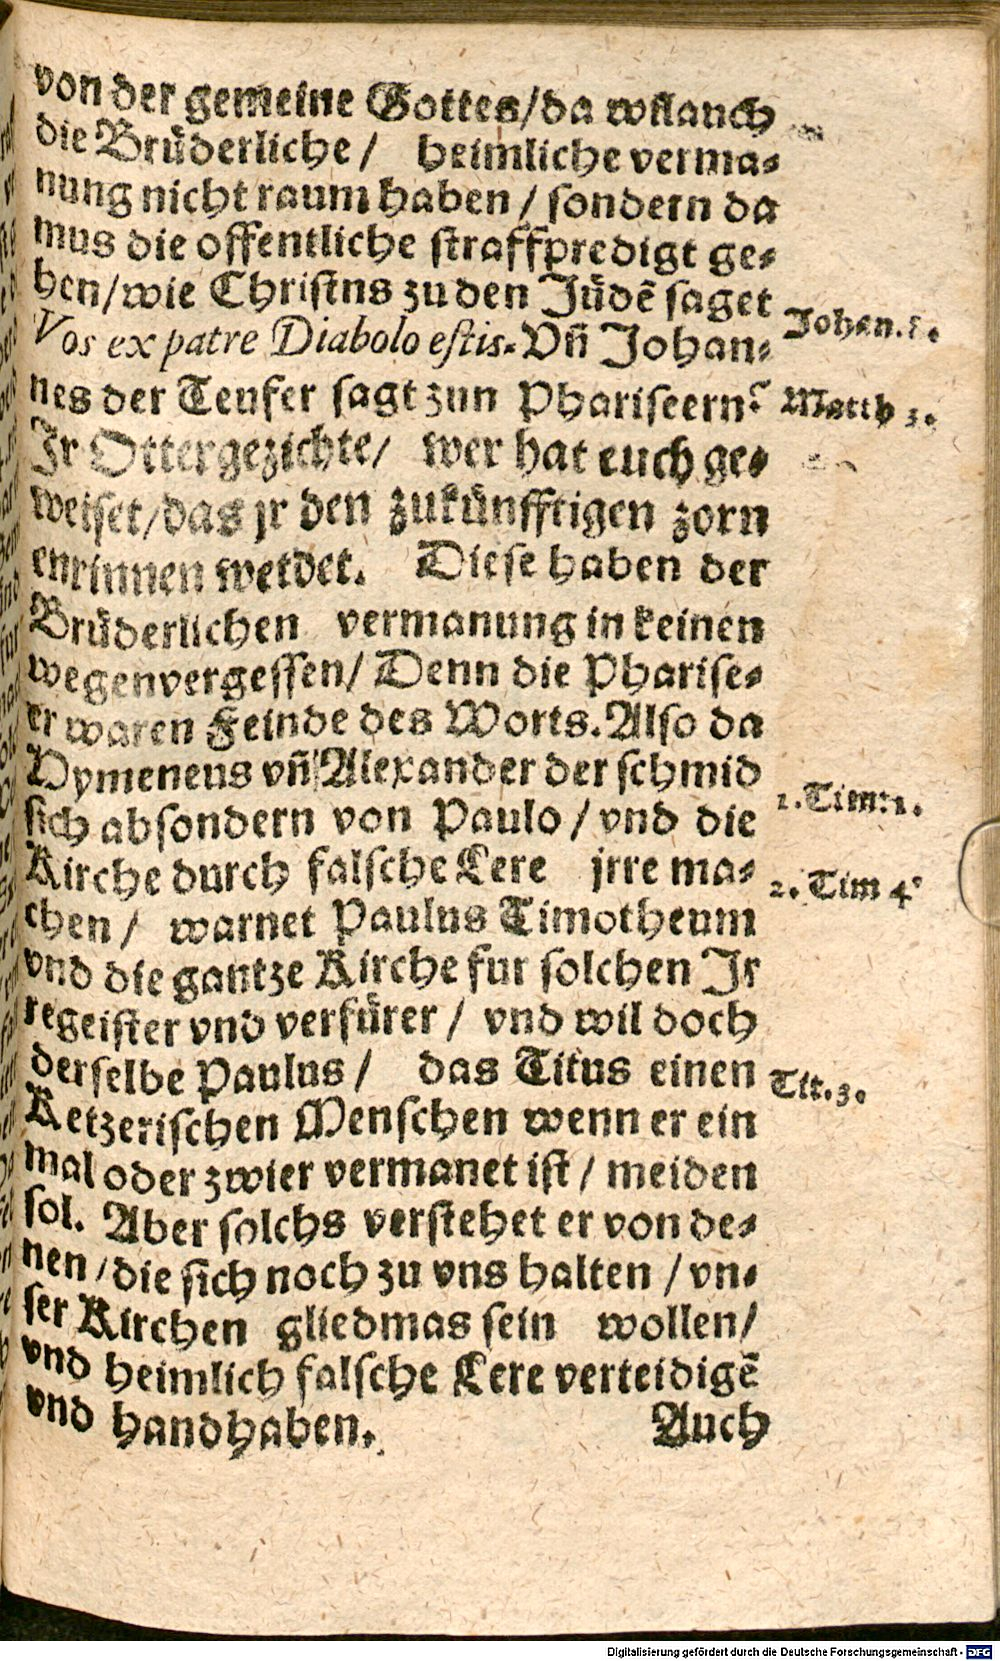 von der gemeine Gottes/da wil auch
die Brüderliche / heimliche verma⸗
nung nicht raum haben / sondern da
mus die offentliche straffpredigt ge⸗
hen/wie Christns zu den Jüdẽ saget
Vos ex patre Diabolo estis. Vñ Johan⸗
Johan.8.
nes der Teufer sagt zun Phariseern:
Matth 3.
Jr Ottergezichte/ wer hat euch ge⸗
weiset/das jr den zukünfftigen zorn
enrinnen werdet. Diese haben der
Brüderlichen vermanung in keinen
wegen vergessen/ Denn die Pharise⸗
er waren Feinde des Worts. Also da
Hymeneus vñ Alexander der schmid
1.Tim:1.
sich absondern von Paulo / vnd die
Kirche durch falsche Lere jrre ma⸗
2. Tim 4.
chen / warnet Paulus Timotheum
vnd die gantze Kirche fur solchen Jr
regeister vnd verfürer / vnd wil doch
derselbe Paulus / das Titus einen
Tit.3.
Ketzerischen Menschen wenn er ein
mal oder zwier vermanet ist / meiden
sol. Aber solchs verstehet er von de⸗
nen / die sich noch zu vns halten / vn⸗
ser Kirchen gliedmas sein wollen/
vnd heimlich falsche Lere verteidigẽ
vnd handhaben.
Auch
Digitalisierung gefördert durch die Deutsche Forschungsgemeinschaft - DFG